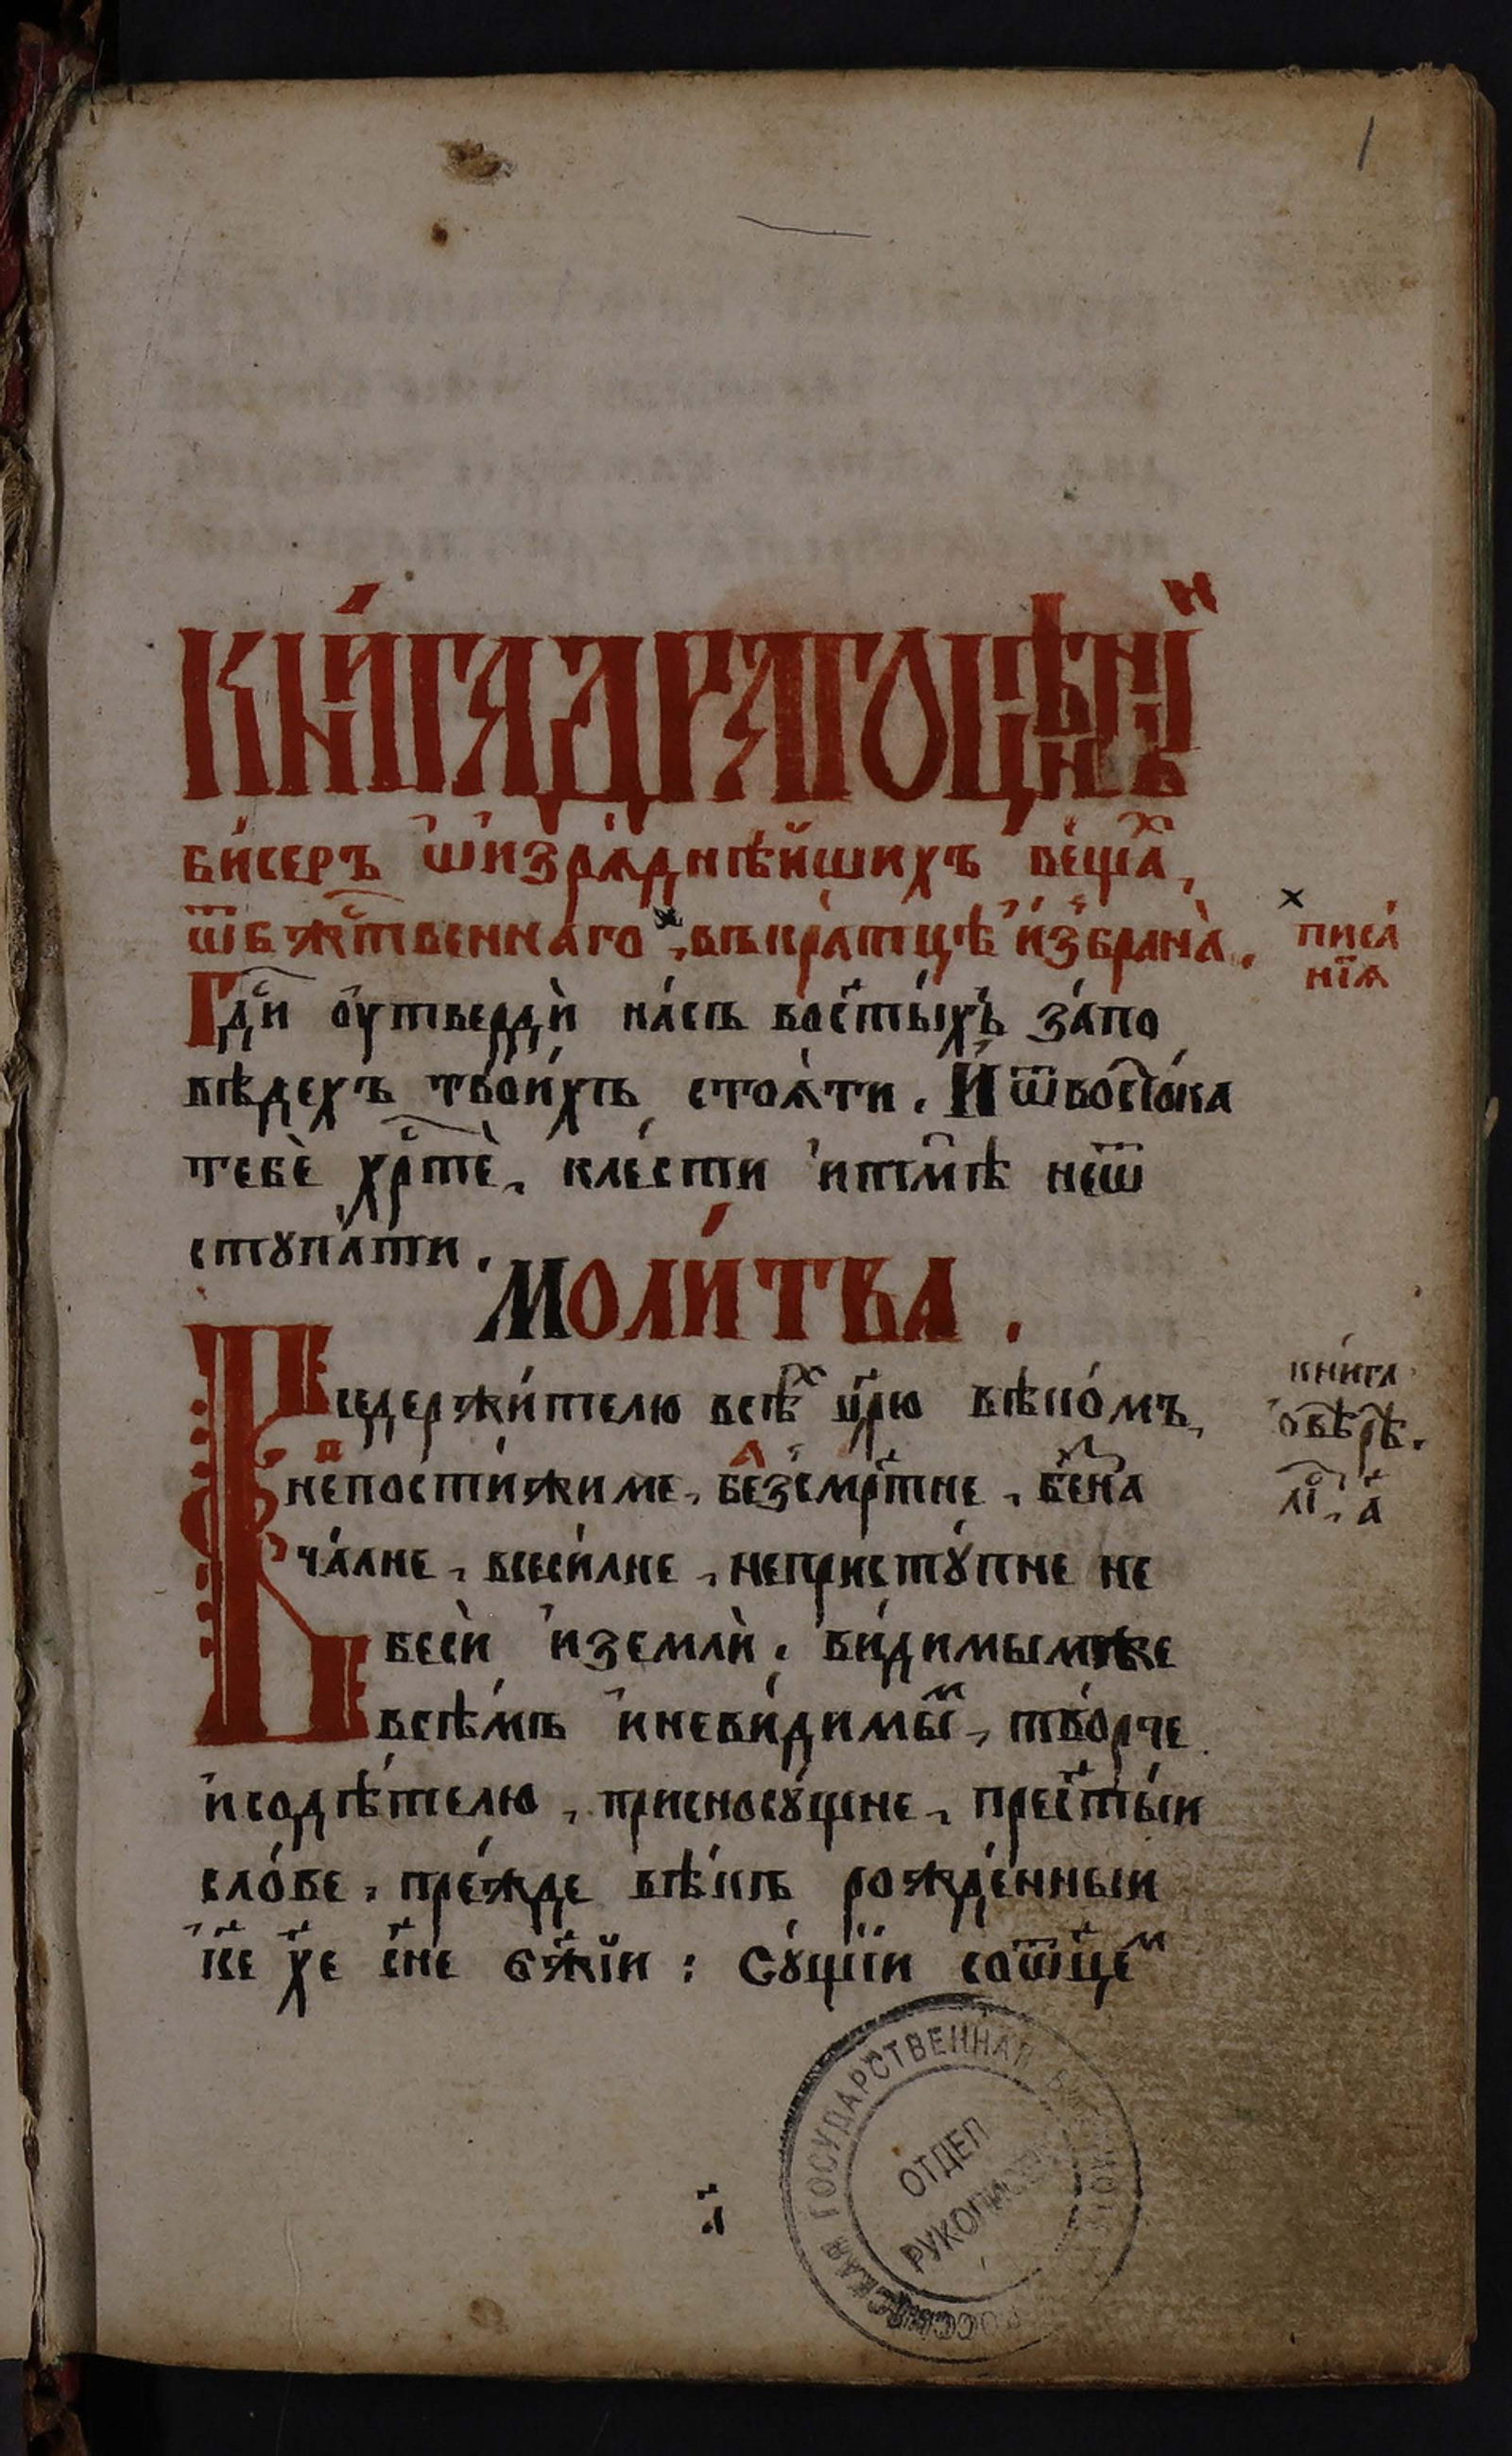 1
КНИ́ГА ДРАГОЦѢ́ННЇИ
би́серъ ѡ҆ и҆зрѧднѣ́йшихъ ве́щаⷯ,
ѿ бжⷭ҇твеннаго, въкра́тцѣ и҆збрана̀.
писа́
нїѧ
Гдⷭ҇и оу҆твердѝ на́съ во ст҃ы́хъ за́по
вѣдехъ твои́хъ стоѧ́ти. И҆ ѿ восто́ка
тебѐ хрⷭ҇тѐ, кле́сти и҆ тмѣ̀ не ѿ
ступа́ти.
МОЛИ́ТВА.
Вседержи́телю всѣⷯ цр҃ю вѣко́мъ,
непостижи́ме, безсмр҃тне, безнⷱ҇а
ча́лне, всеси́лне, непристу́пне не
бесѝ и҆ землѝ. ви́димымже
всѣ́мъ и҆ неви́димыⷨ, тво́рче
и҆ содѣ́телю, присносу́щне, прест҃ы́и
сло́ве, пре́жде вѣ́къ рожде́нный
і҆с҃е х҃е сн҃е бж҃їи: Су́щїи со ѿц҃еⷨ
кни́га
о҆ вѣ́рѣ.
лиⷭ҇, а҃
а҃
РОССИЙСКАЯ ГОСУДАРСТВЕННАЯ БИБЛИОТЕКА
ОТДЕЛ
РУКОПИСЕЙ